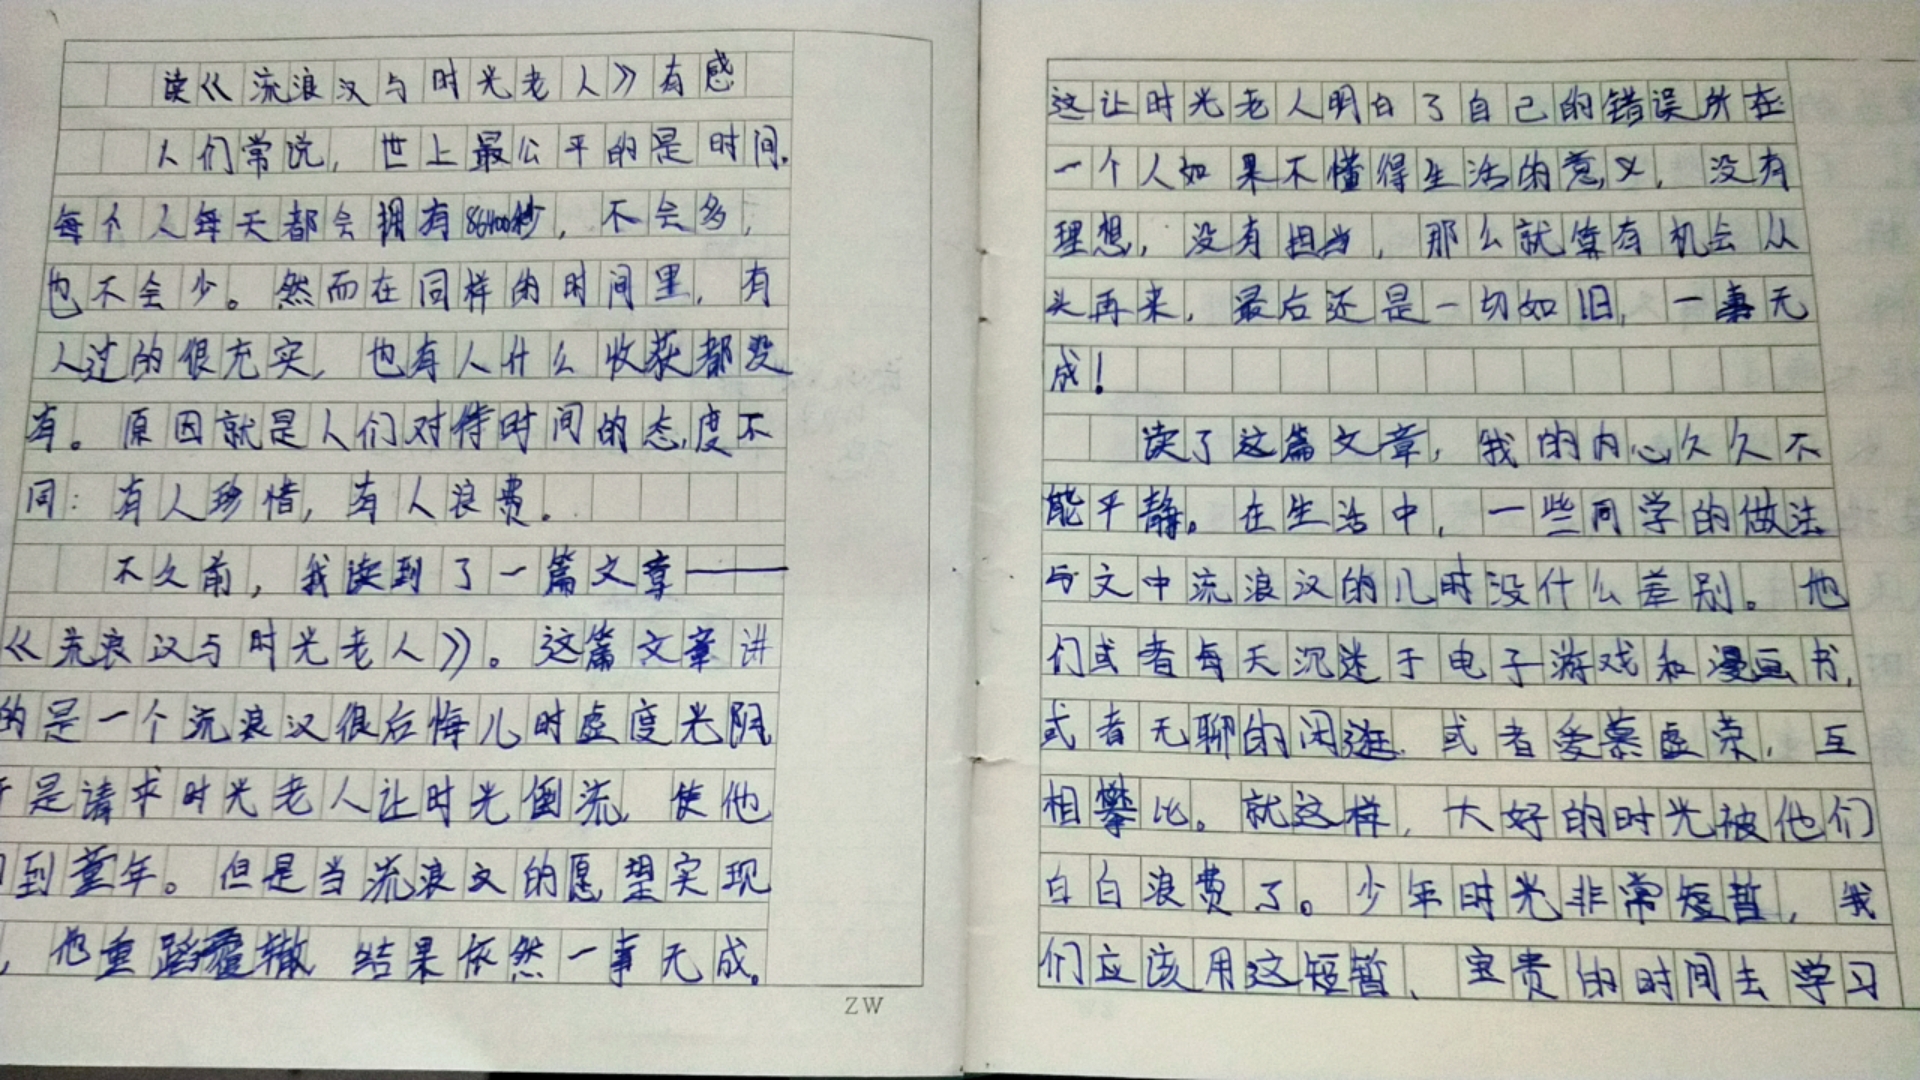 读《流浪汉与时光老人》有感
人们常说，世上最公平的是时间。
每个人每天都会拥有86400秒，不会多，
也不会少。然而在同样的时间里，有
人过的很充实，也有人什么收获都没
有。原因就是人们对待时间的态度不
同：有人珍惜，有人浪费。
不久前，我读到了一篇文章——
《流浪汉与时光老人》。这篇文章讲
的是一个流浪汉很后悔儿时虚度光阴
于是请求时光老人让时光倒流，使他
回到童年。但是当流浪汉的愿望实现
，他重蹈覆辙 结果依然一事无成。
ZW
这让时光老人明白了自己的错误所在
一个人如果不懂得生活的意义，没有
理想，没有担当，那么就算有机会从
头再来，最后还是一切如旧，一事无
成！
读了这篇文章，我的内心久久不
能平静。在生活中，一些同学的做法
与文中流浪汉的儿时没什么差别。他
们或者每天沉迷于电子游戏和漫画书，
或者无聊的闲逛，或者爱慕虚荣，互
相攀比。就这样，大好的时光被他们
白白浪费了。少年时光非常短暂，我
们应该用这短暂、宝贵的时间去学习